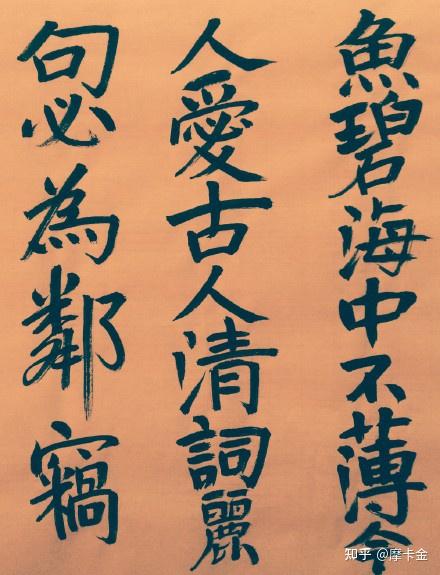 魚碧海中不薄今
人愛古人清詞麗
句必為鄰竊
知乎 @摩卡金